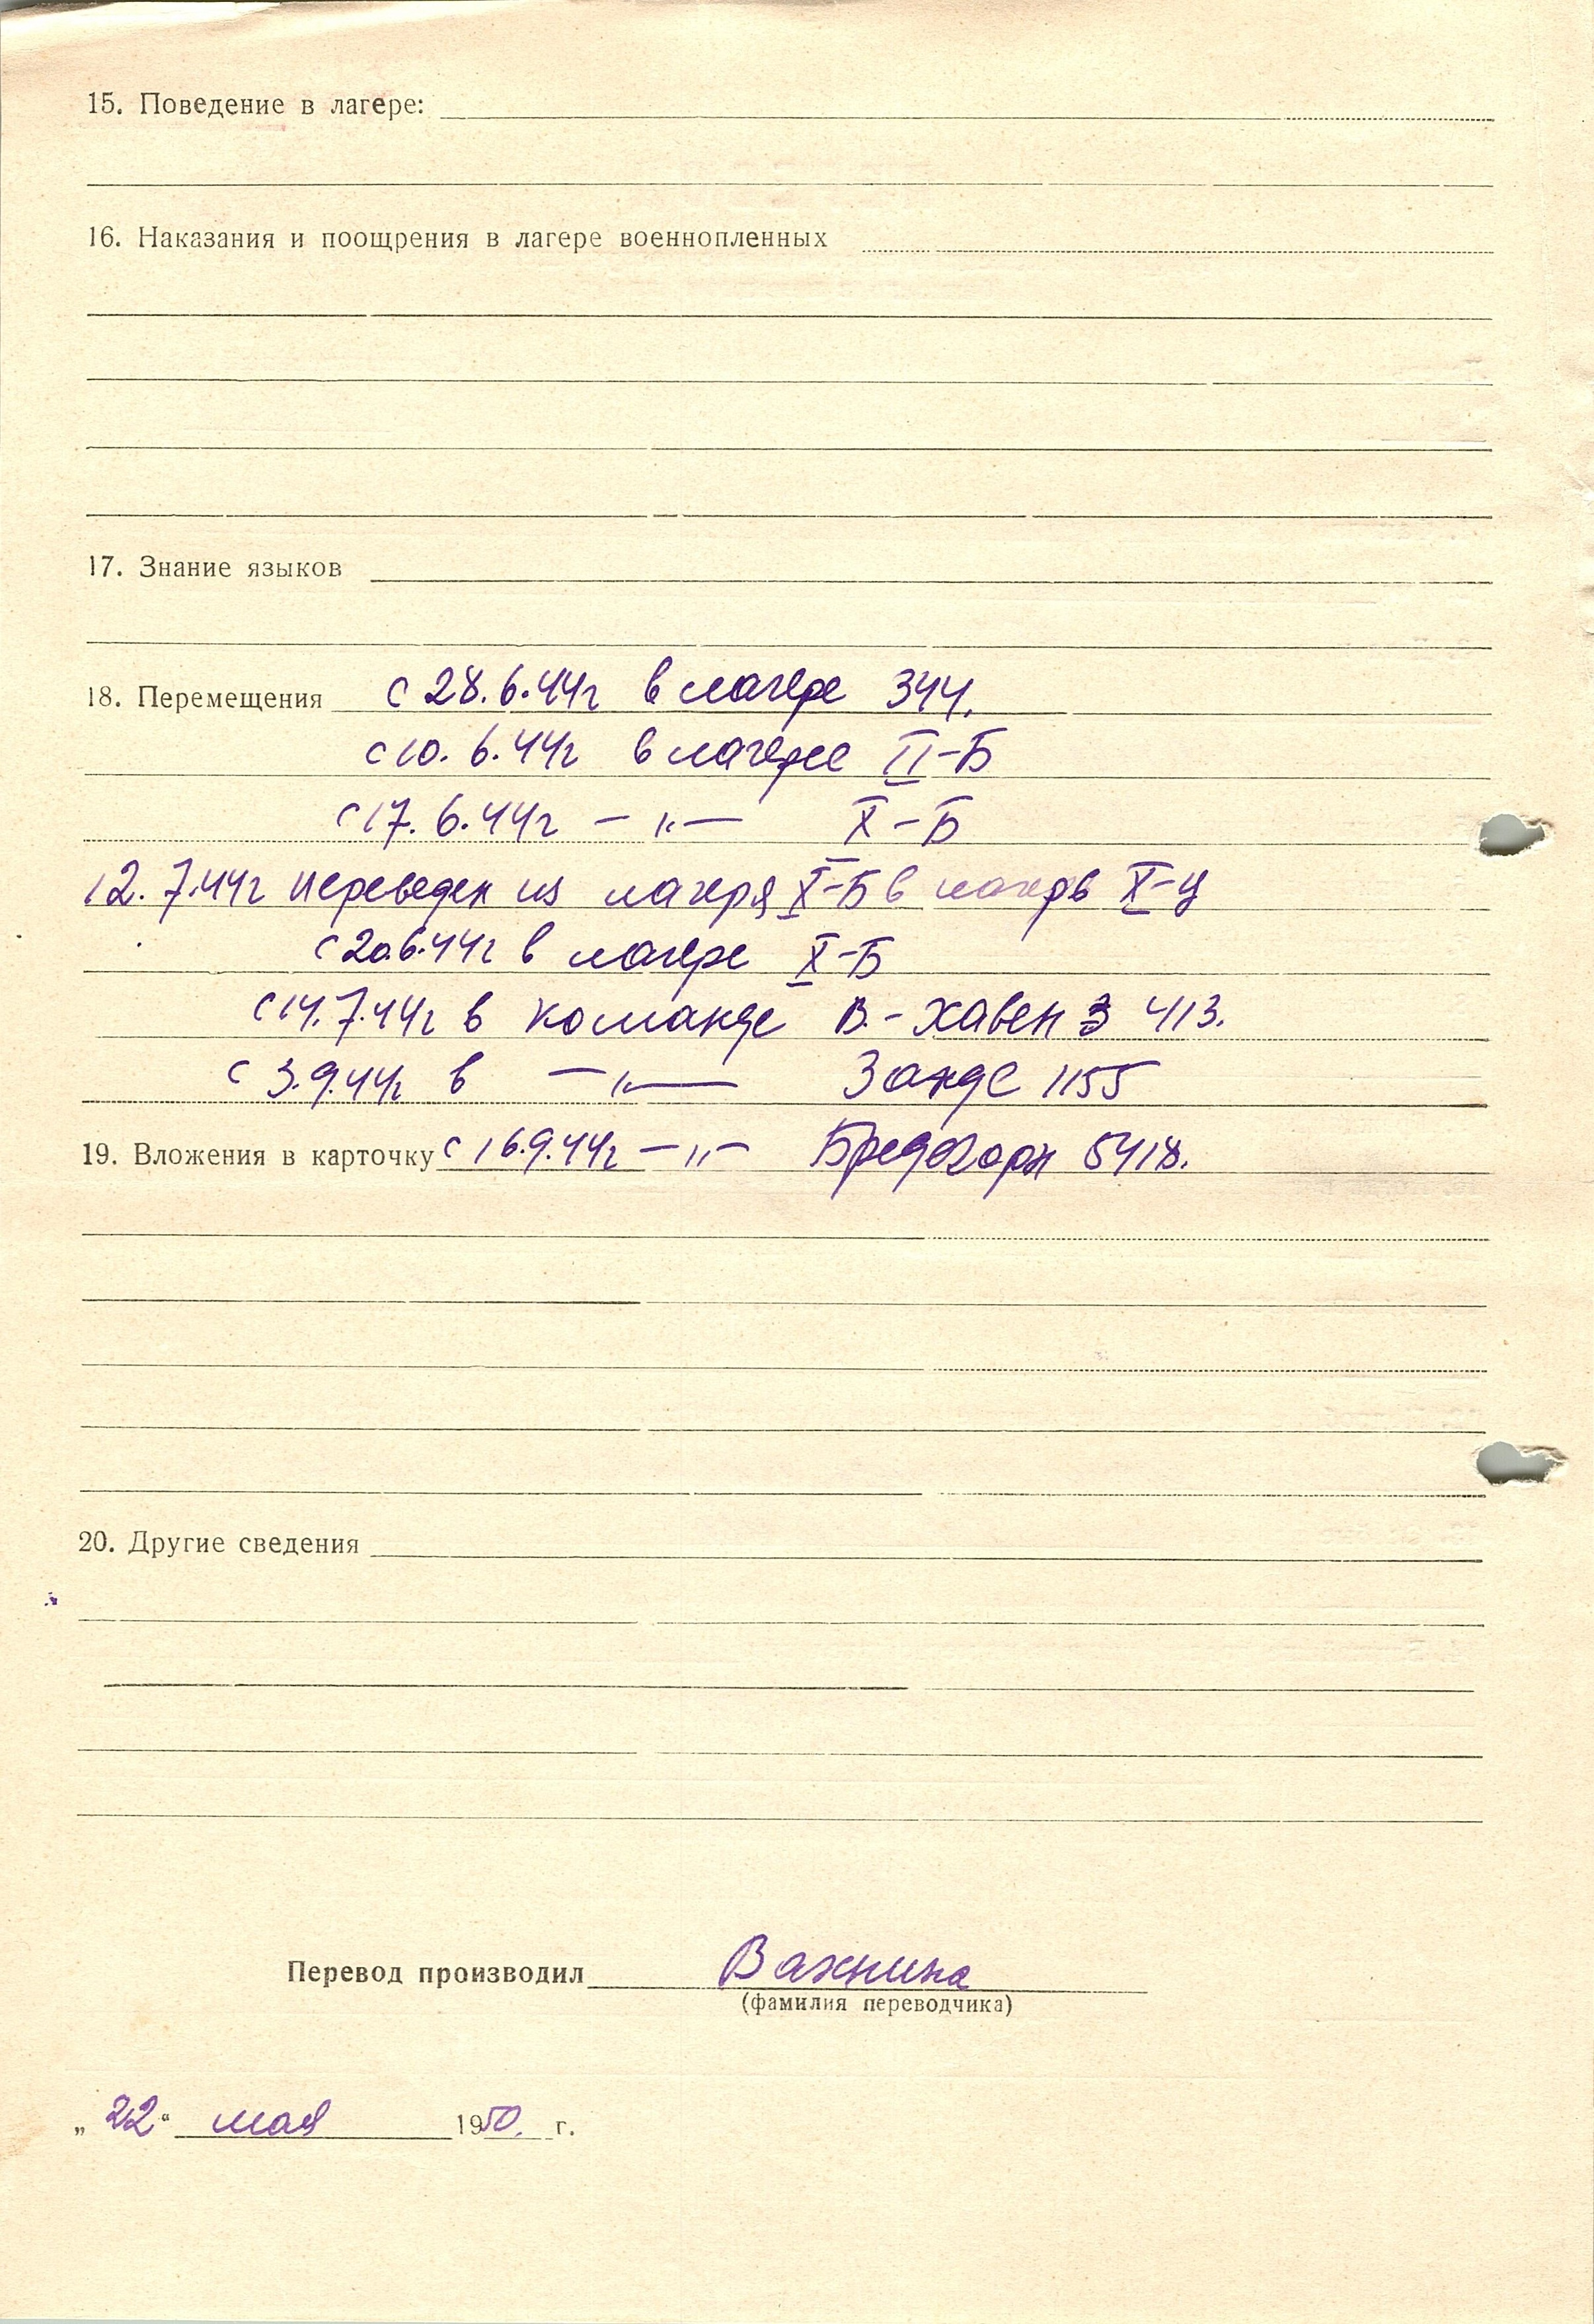 15. Поведение в лагере:
16. Наказания и поощрения в лагере военнопленных
17. Знание языков
18. Перемещения с 28.6.44г в лагере 344.
с 10.6.44г в лагере II-Б
с 17.6.44г — „ — X-Б
12.7.44г переведен из лагеря X-Б в лагерь X-Ц
с 20.6.44г в лагере X-Б
с 14.7.44г в команде В.-хавен 3 413.
с 3.9.44г в — „ — Занде 1155
19. Вложения в карточку с 16.9.44г — „ — 5418.
20. Другие сведения
Перевод производил Важнина
(фамилия переводчика)
„22“ мая 1950. г.